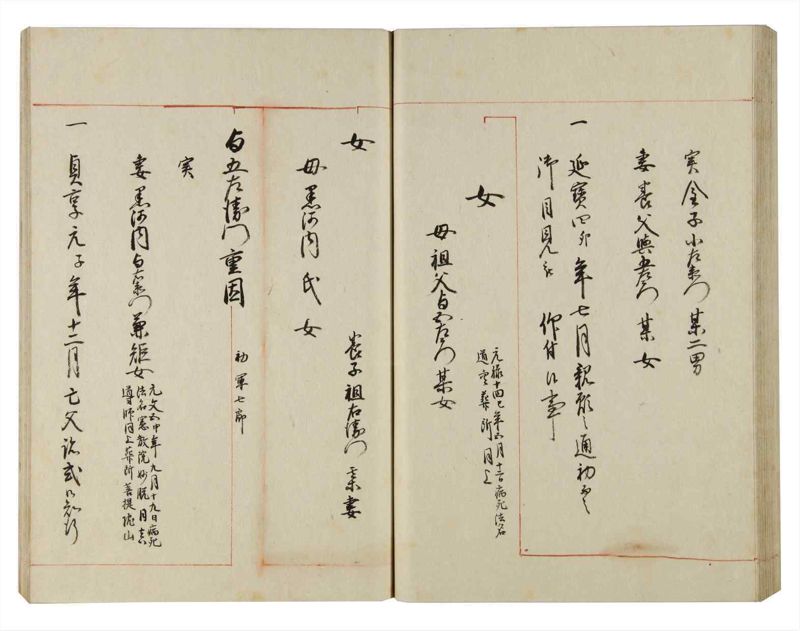 実金子小左衛門某二男
妻養父與五左衛門某女
一延寶四卯年七月親願之通初而
御目見被仰付候事
女
母祖父与五左衛門某女
元禄十四巳年五月十二日病死法名
道空葬所同上
女
母黒河内氏女
養子祖右衛門某妻
与五左衛門重固
初軍七郎
実
妻黒河内与右衛門兼矩女
元文五申年九月十九日病死
法名寒教院妙脱日
導師同上葬所菩提院山
一貞享元子年十二月亡父跡式